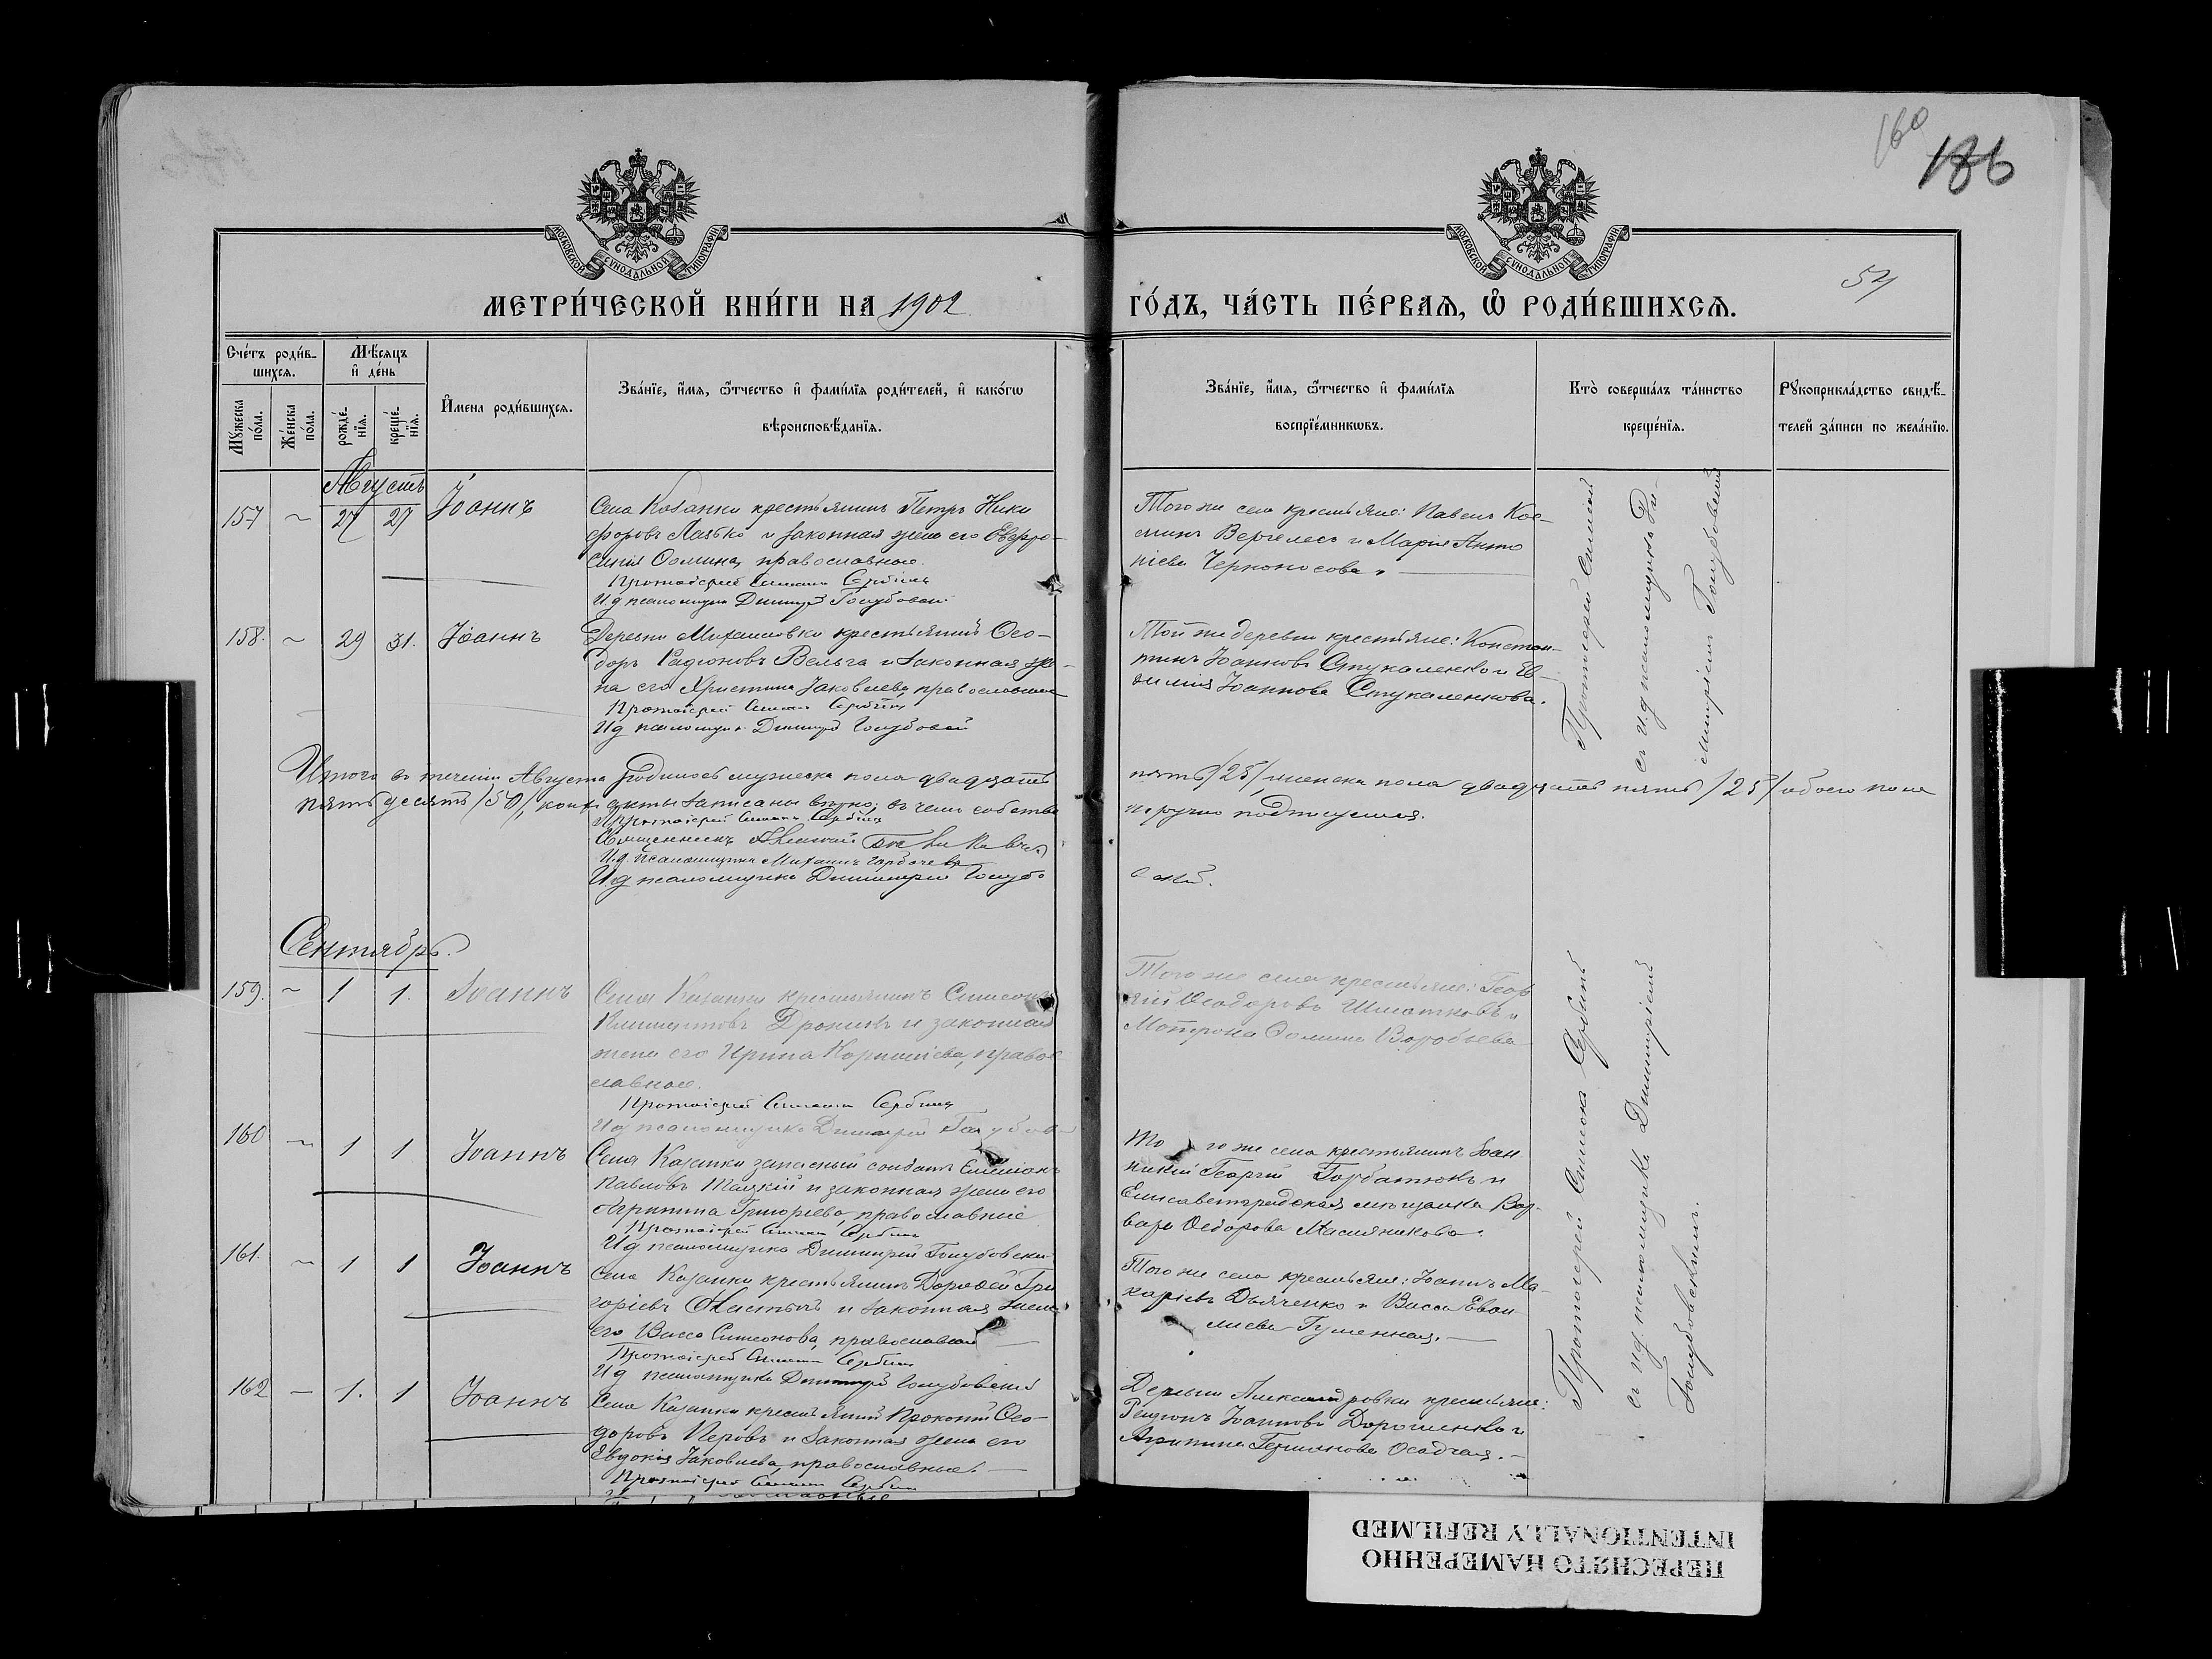 160
186
54
МОСКОВСКОЙ СѴНОДАЛЬНОЙ ТИПОГРАФИИ
МОСКОВСКОЙ СѴНОДАЛЬНОЙ ТИПОГРАФИИ
МЕТРИ́ЧЕСКОЙ КНИ́ГИ НА 1902
ГО́ДЪ, ЧА́СТЬ ПЕ́РВАѦ, Ѡ РОДИ́ВШИХСѦ.
Сче́тъ роди́в-
шихсѧ.
Мꙋ́жеска по́ла.
Же́нска по́ла.
Мѣ́сѧцъ
и҆ де́нь
рожде́-
нїѧ.
креще́-
нїѧ.
И҆мена роди́вшихсѧ.
Зва́нїе, и҆́мѧ, ѻ҆́тчество и҆ фами́лїѧ роди́телей, и҆ како́гѡ
вѣроисповѣ́данїѧ.
Зва́нїе, и҆́мѧ, ѻ҆́тчество и҆ фами́лїѧ
воспрїе́мникѡвъ.
Кто̀ соверша́лъ та́инство
креще́нїѧ.
Рꙋкоприкла́дство свидѣ́-
телей за́писи по жела́нїю.
Августъ
157 ~ 27 27 Іоаннъ
Села Казанки крестьянинъ Петръ Ники
форовъ и законная жена его Евфро-
синія Ѳомина, православные.
Протоіерей Симеонъ Сербинъ
И.д. псаломщика Димитрій Голубовскій
Того же села крестьяне: Павелъ Кос-
минъ Вергелесъ и Марія Анто
ніева Черноносова.
158. ~ 29 31. Іоаннъ
Деревни Михайловки крестьянинъ Ѳео-
доръ Радіоновъ Вельга и законная же-
на его Христина Іаковлева, православные
Протоіерей Симеонъ Сербинъ
И.д. псаломщика Димитрій Голубовскій
Той же деревни крестьяне: Констан-
тинъ Іоанновъ Стукаленко и Ев-
Іоаннова Стукаленкова.
Протоіерей Симеонъ
съ и.д. псаломщика Ди-
митріемъ Голубовскимъ
Итого въ теченіи Августа родилось мужеска пола двадцать
пять /25/ женска пола двадцать пять /25/ обоего пола
пятьдесятъ /50/, акты записаны вѣрно, въ чемъ собствен
норучно подписуемся.
Протоіерей Симеонъ Сербинъ
Священникъ Алексій
И.д. псаломщика Михаилъ Горбачевъ
И.д. псаломщика Димитрій Голубо
скій.
Сентябрь.
159. ~ 1 1. Іоаннъ
Села Казанки крестьянинъ Симеонъ
Климентовъ и законная
жена его Ирина Корниліева, право
славные.
Протоіерей Симеонъ Сербинъ
И.д. псаломщика Димитрій Голубов
Того же села крестьяне: Геор
гій Ѳеодоровъ Шматковъ и
Мотрона Ѳомина Воробьева
160 ~ 1 1 Іоаннъ
Села Казанки запасный солдатъ
Павловъ и законная жена его
Агрипина Григорьева, православные
Протоіерей Симеонъ Сербинъ
И.д. псаломщика Димитрій Голубовскі
То го же села крестьянинъ Іоан
никій Георгій Горбатюкъ и
Елисаветградская мѣщанка Вар-
вара Ѳедорова Масляникова.
161. ~ 1 1 Іоаннъ
Села Казанки крестьянинъ Дороѳей Гри
горіевъ и законная жена
его Васса Симеонова, православные
Протоіерей Симеонъ Сербинъ
И.д. псаломщика Димитрій Голубовскій
Того же села крестьяне: Іоаннъ Ма-
каріевъ Дьяченко и Васса
Гуменная.
162 — 1. 1 Іоаннъ
Села Казанки крестьянинъ Прокопій Ѳео-
доровъ Перовъ и законная жена его
Евдокія Іаковлева, православные.
Протоіерей Симеонъ Сербинъ
Деревни Александровки крестьяне:
Іоанновъ Дорошенко и
Агрипина Осадчая.
Протоіерей Симеонъ Сербинъ
съ и.д. псаломщика Димитріемъ
Голубовскимъ.
ПЕРЕСНЯТО НАМЕРЕННО
INTENTIONALLY REFILMED